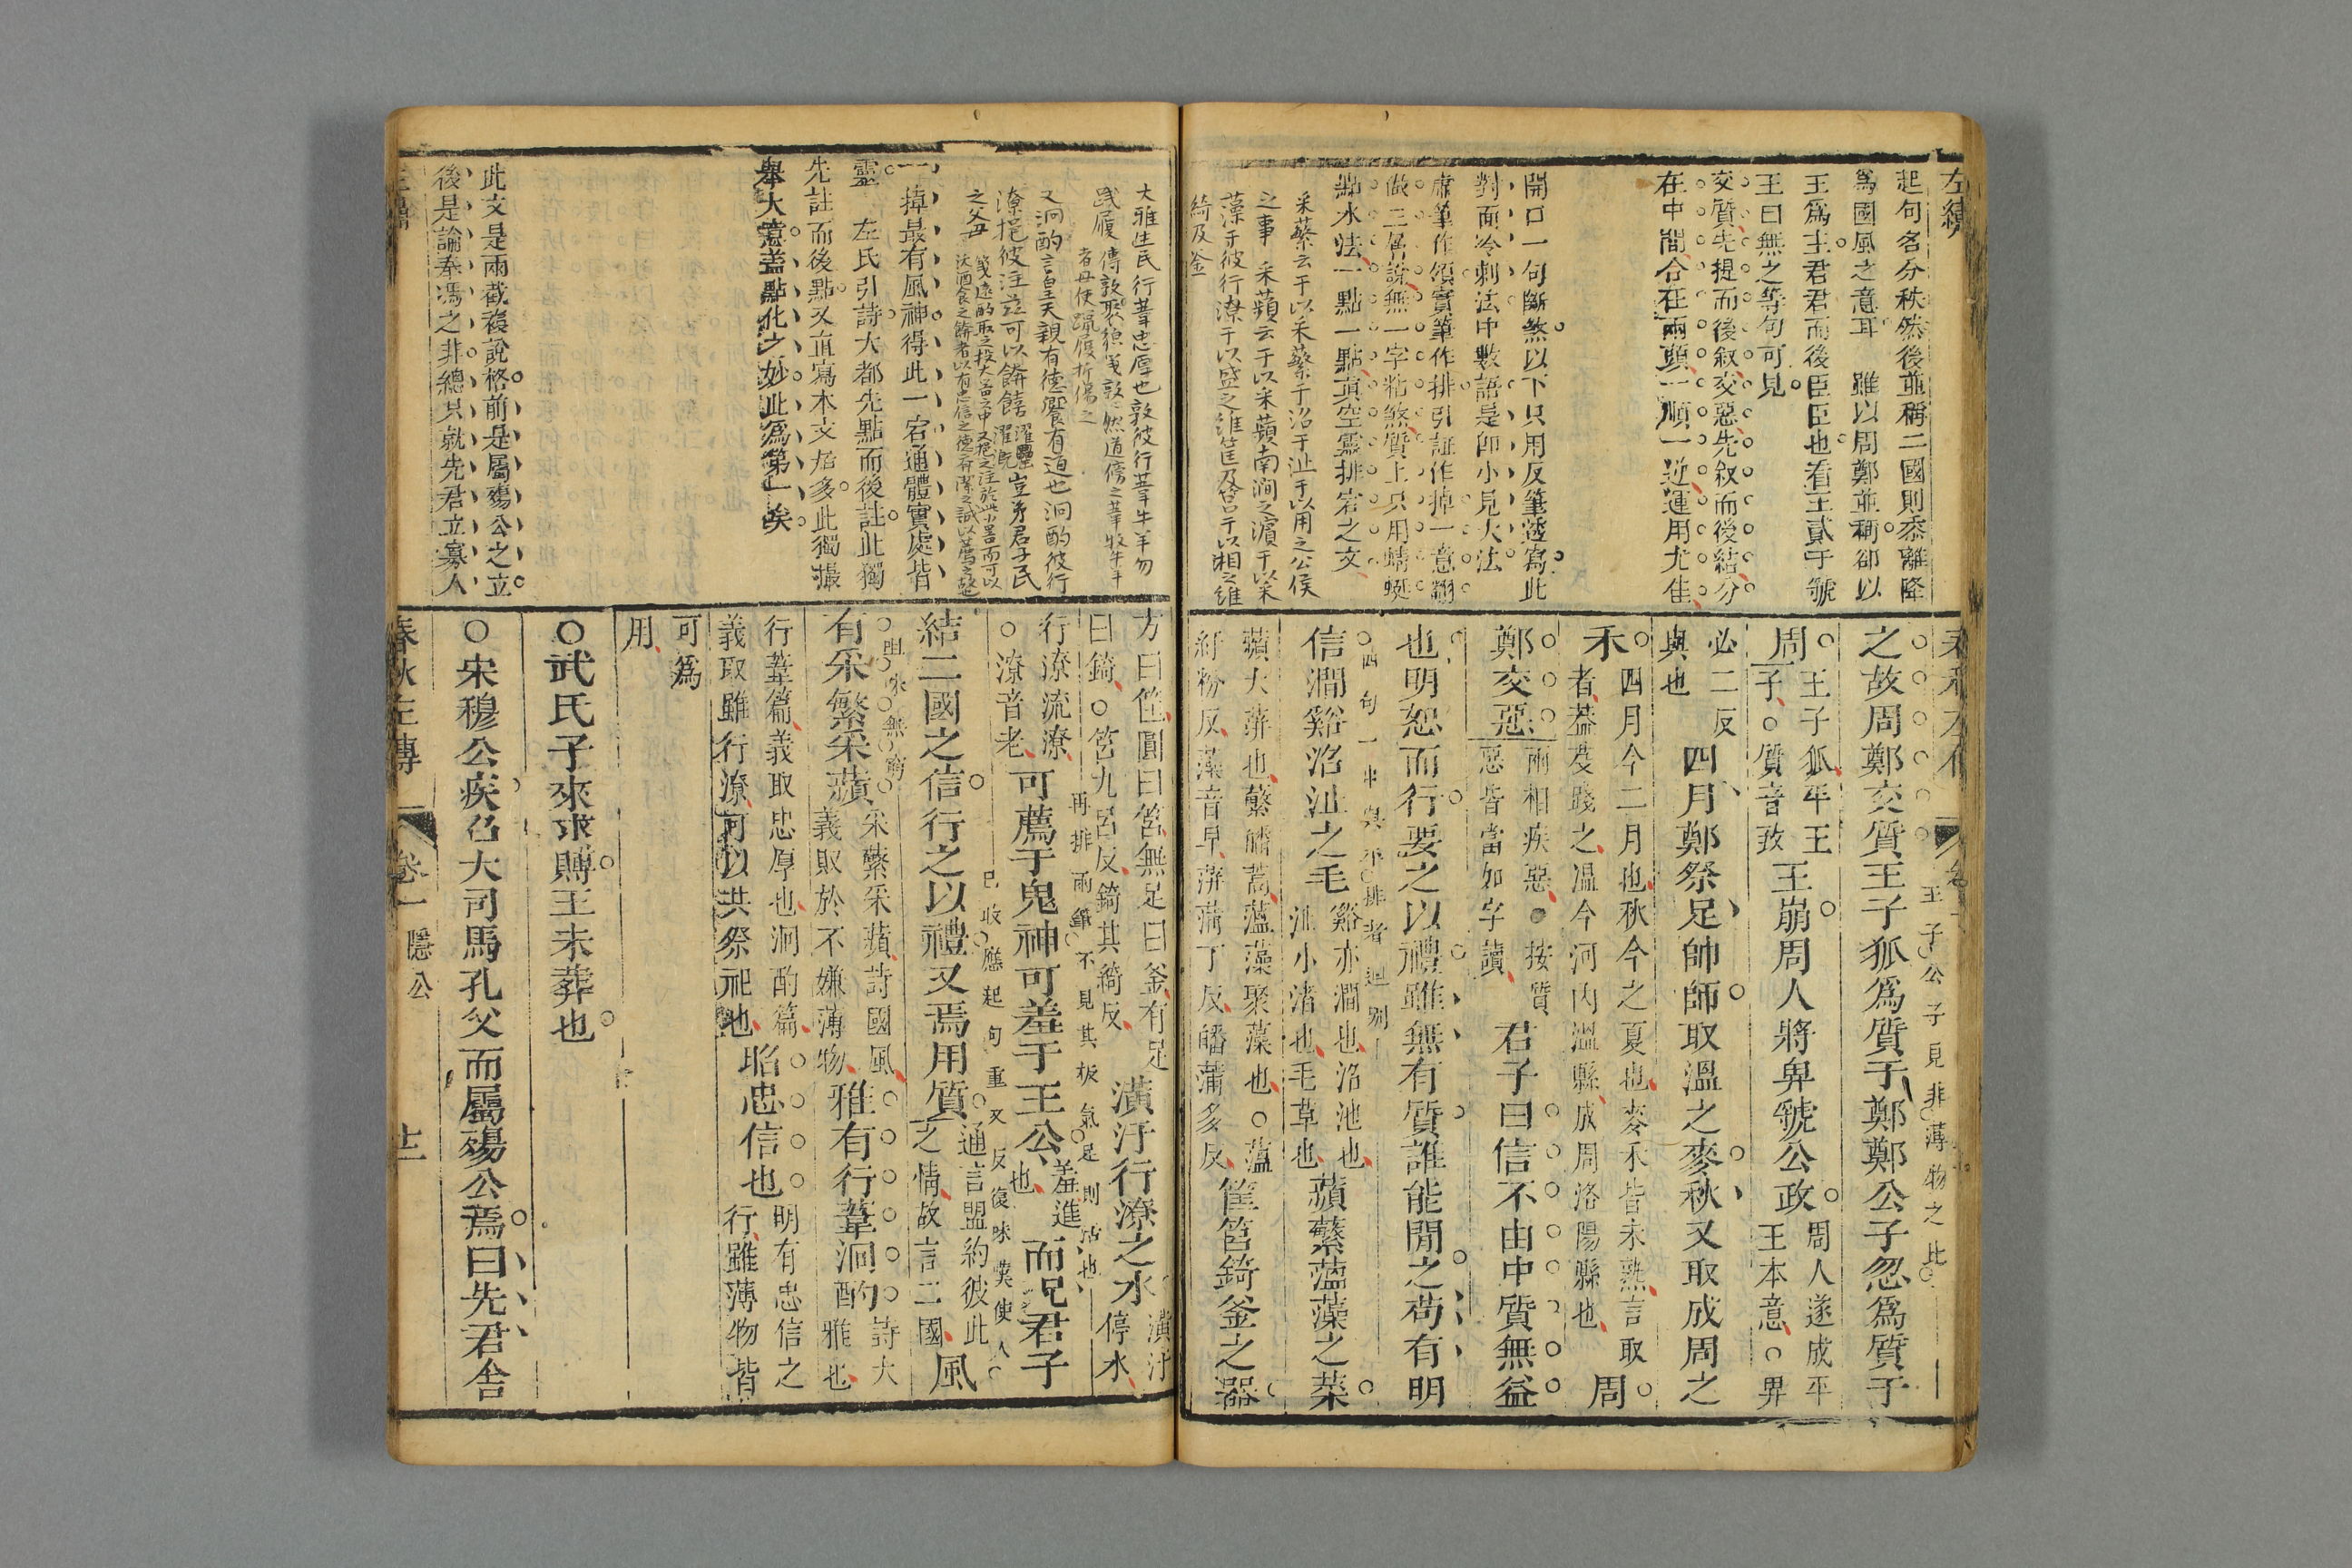 左繡
起句名分秩然後並稱二國則黍離降
爲國風之意耳　雖以周鄭並稱卻以
王爲主君君而後臣臣也看王貳于虢
王曰無之等句可見
交質先提而後叙交惡先叙而後結分
在中間合在兩頭一順一逆運用尤佳
開口一句斷煞以下只用反筆透寫此
對面冷刺法中數語是卽小見大法
虛筆作領實筆作排引証作掉一意翻
做三層說無一字粘煞質上只用蜻蜓
點水法一點一點真空靈排宕之文
采蘩云于以采蘩于沼于沚于以用之公侯
之事　采蘋云于以采蘋南澗之濱于以采
藻于彼行潦于以盛之維筐及筥于以湘之維
錡及釜
之故周鄭交質王子狐爲質于鄭鄭公子忽爲質于
王子公子見非薄物之比
周王子狐平王子○質音致王崩周人將畀虢公政周人遂成平王本意○畀
必二反與也四月鄭祭足帥師取溫之麥秋又取成周之
禾四月今二月也秋今之夏也麥禾皆未熟言取者葢芟踐之溫今河内溫縣成周洛陽縣也周
鄭交惡兩相疾惡●按質惡皆當如字讀君子曰信不由中質無益
也明恕而行要之以禮雖無有質誰能間之苟有明
四句一串與不排者迥别
信澗谿沼沚之毛谿亦澗也沼池也沚小渚也毛草也蘋蘩薀藻之菜
蘋大萍也蘩皤蒿薀藻聚藻也○薀紆粉反藻音早萍蒲丁反皤蒲多反筐筥錡釜之器
大雅生民　行葦忠厚也敦彼行葦牛羊勿
踐履傳敦聚貌箋敦敦然道傍之葦牧牛羊者毋使躐履折傷之
又泂酌言皇天親有德饗有道也泂酌彼行
潦挹彼注茲可以餴饎濯罍濯溉豈弟君子民
之父母
一掉最有風神得此一宕通體實處皆
靈　左氏引詩大都先點而後註此獨
先註而後點又直寫本文居多此獨撮
舉大意蓋點化之妙此爲第一唉
此文是兩截複說格前是屬殤公之立
後是論奉馮之非總只就先君立寡人
方曰筐圓曰筥無足曰釜有足曰錡○筥九呂反錡其綺反潢汙行潦之水潢汙停水
行潦流潦○潦音老可薦于鬼神可羞于王公羞進也而况君子
再排兩疊不見其板氣足則活也
結二國之信行之以禮又焉用質通言盟約彼此之情故言二國風
已收應起句重又反復味嘆使人
有采蘩采蘋采蘩采蘋詩國風義取於不嫌薄物雅有行葦泂酌詩大雅也
咀味無窮
行葦篇義取忠厚也泂酌篇義取雖行潦可以共祭祀也昭忠信也明有忠信之行雖薄物皆
可爲用
○武氏子來求賻王未葬也
○宋穆公疾召大司馬孔父而屬殤公焉曰先君舍
春秋左傳　卷一　隱公　十二